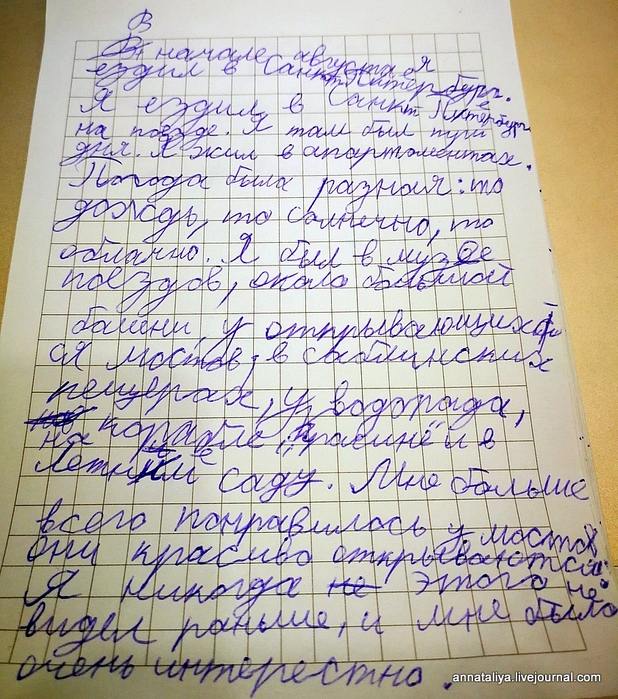 В
В начале августа я
ездил в Санкт Питербург.
Я ездил в Санкт Питербург
на поезде. Я там был пути
дня. Я жил в апартоментах.
Погода была разная: то
дождь, то солнечно, то
облачно. Я был в музее
поездов, около большой
башни, у открывающихся
ся мостов, в саблинских
пещерах, у водопада,
на корабле, и в
Летний саду. Мне больше
всего понравилось у мостов
они красиво открываются.
Я никогда не этого не
видел раньше, и мне было
очень интерестно.
annataliya.livejournal.com